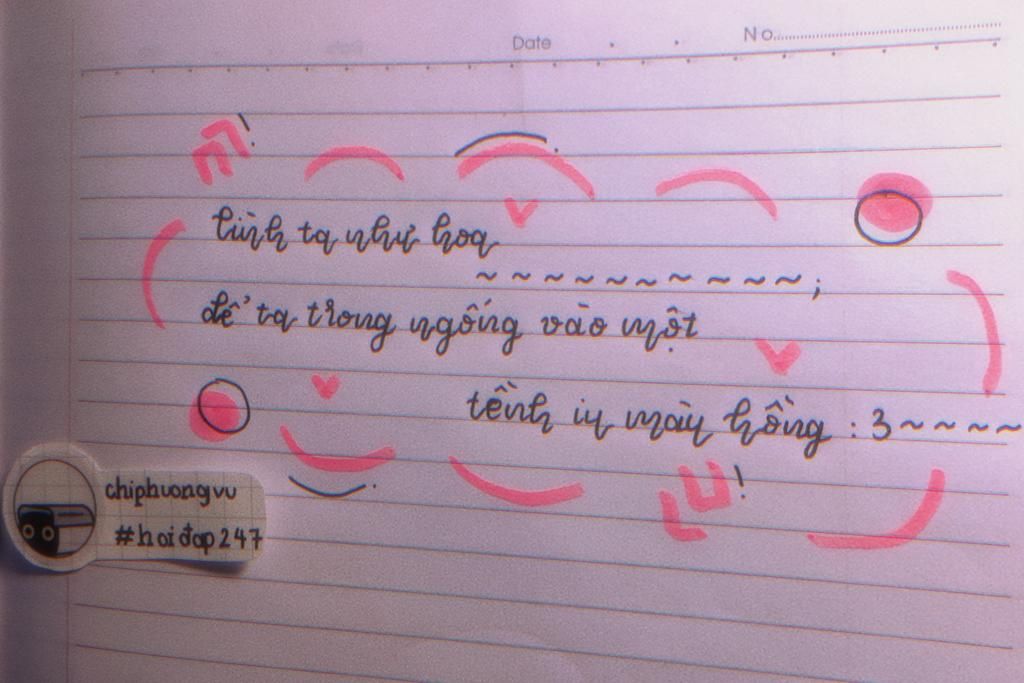 Date
No.
tình ta như hoa
~~~~~~~~~~;
để ta trong ngống vào một
tềnh iu màu hồng :3~~~~
chiphuongvu
#hoiđap247